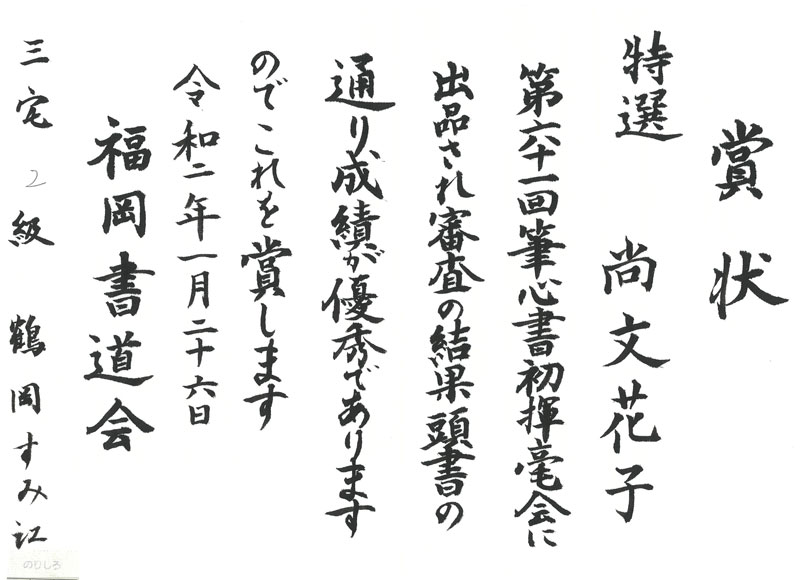 賞状
特選 尚文花子
第六十一回筆心書初揮毫会に
出品され審査の結果頭書の
通り成績が優秀であります
のでこれを賞します
令和二年一月二十六日
福岡書道会
三宅 2級 鶴岡すみ江
のりしろ